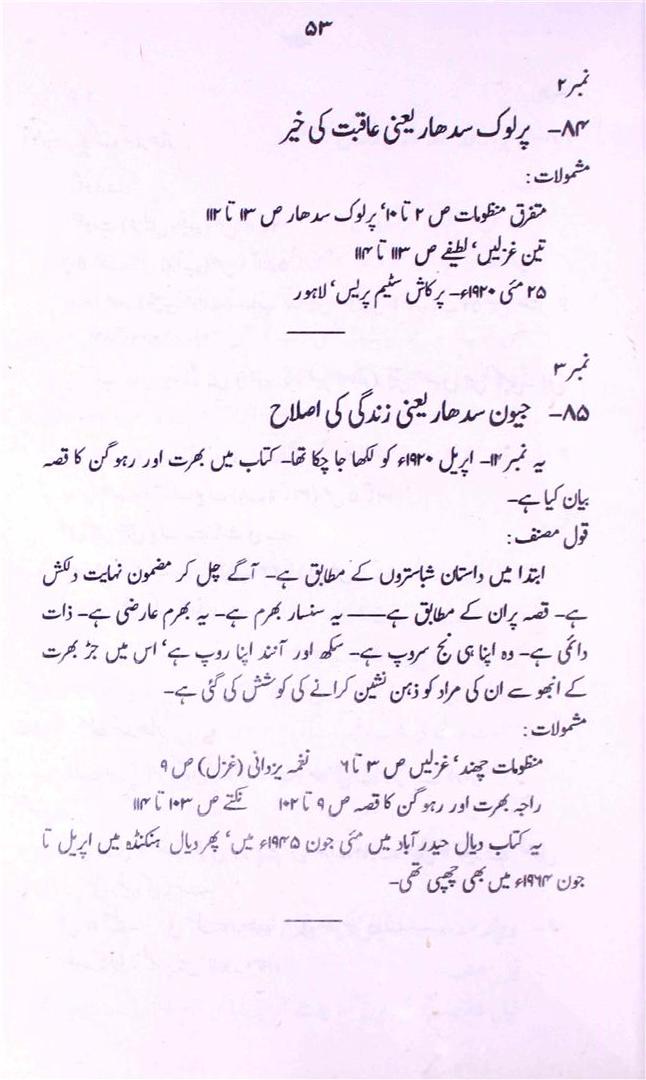 ۵۳
نمبر ۲
۸۴- پرلوک سدھار یعنی عاقبت کی خیر
مشمولات :
متفرق منظومات ص ۲ تا ۱۰، پرلوک سدھار ص ۱۳ تا ۱۱۲
تین غزلیں، لطیفے ص ۱۱۳ تا ۱۱۴
۲۵ مئی ۱۹۲۰ء- پرکاش سٹیم پریس، لاہور
نمبر ۳
۸۵- جیون سدھار یعنی زندگی کی اصلاح
یہ نمبر ۱۴- اپریل ۱۹۲۰ء کو لکھا جا چکا تھا- کتاب میں بھرت اور رہوگن کا قصہ
بیان کیا ہے-
قول مصنف :
ابتدا میں داستان شاستروں کے مطابق ہے- آگے چل کر مضمون نہایت دلکش
ہے- قصہ پران کے مطابق ہے—— یہ سنسار بھرم ہے- یہ بھرم عارضی ہے- ذات
دائمی ہے- وہ اپنا ہی نج سروپ ہے- سکھ اور آنند اپنا روپ ہے، اس میں جڑ بھرت
کے انبھو سے ان کی مراد کو ذہن نشین کرانے کی کوشش کی گئی ہے-
مشمولات :
منظومات چھند، غزلیں ص ۳ تا ۶ نغمہ یزدانی (غزل) ص ۹
راجہ بھرت اور رہوگن کا قصہ ص ۹ تا ۱۰۲ نکتے ص ۱۰۳ تا ۱۱۴
یہ کتاب دیال حیدر آباد میں مئی جون ۱۹۴۵ء میں، پھر دیال ہنکنڈہ میں اپریل تا
جون ۱۹۶۴ء میں بھی چھپی تھی-